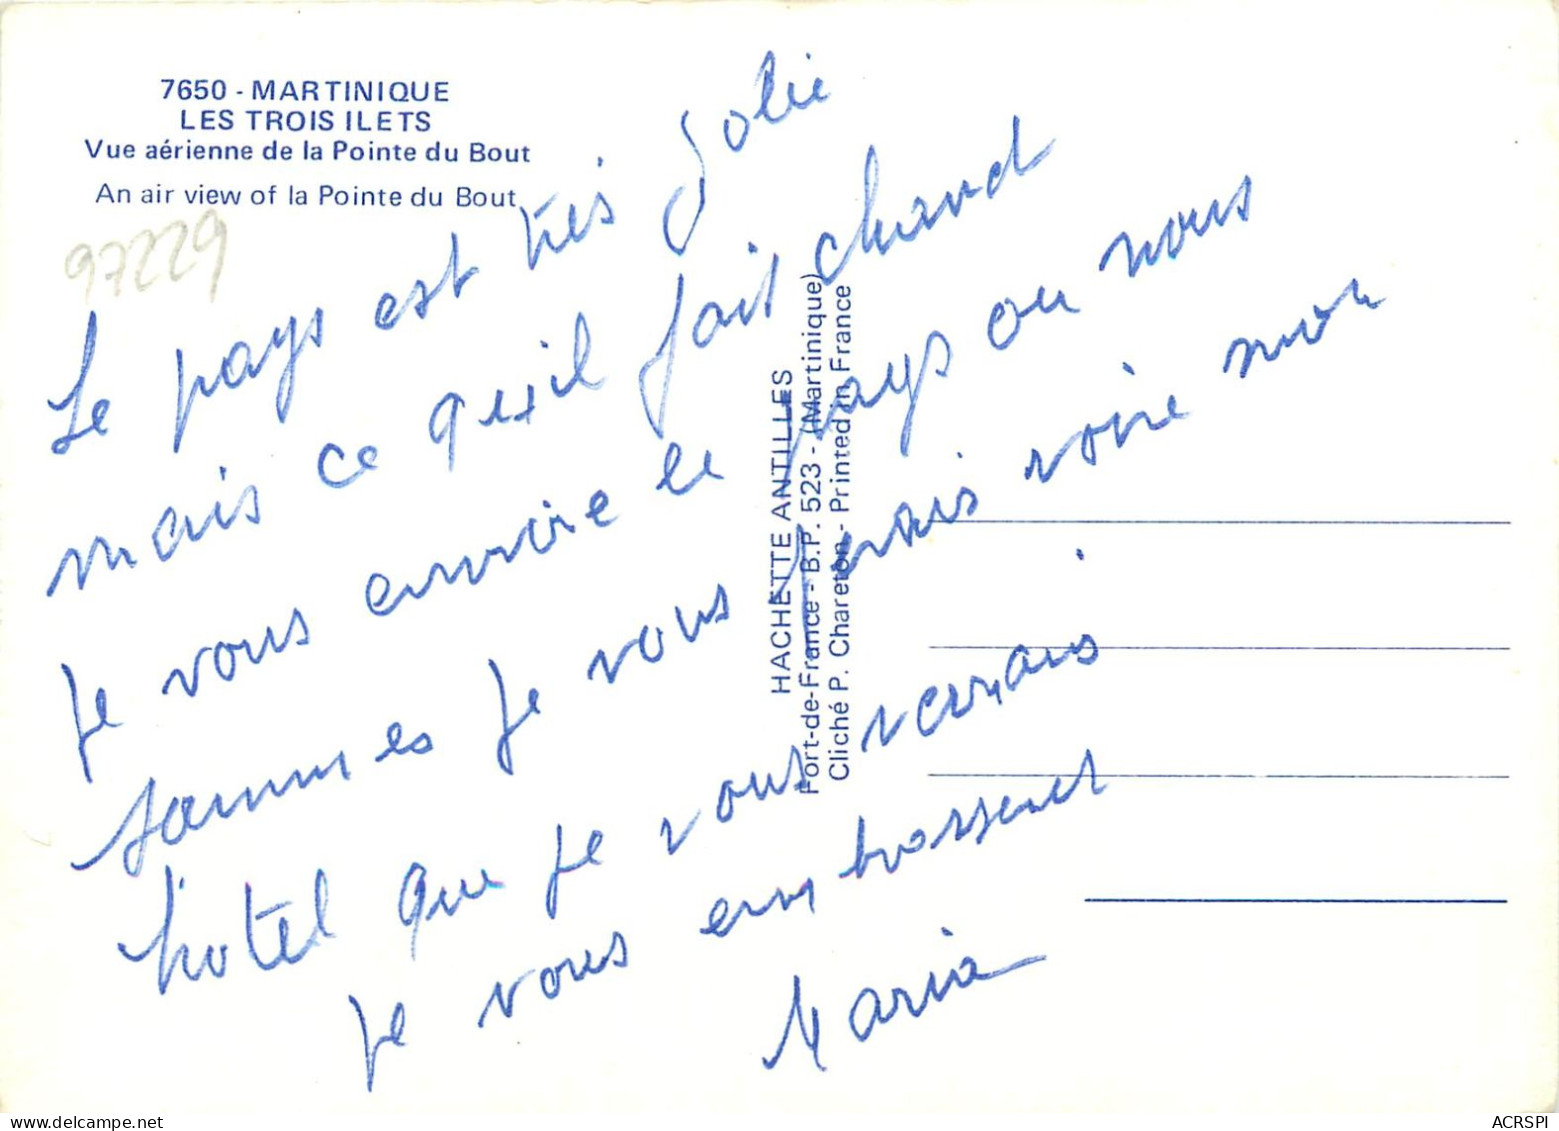 7650 - MARTINIQUE
LES TROIS ILETS
Vue aérienne de la Pointe du Bout
An air view of la Pointe du Bout
97229
Le pays est très Jolie
mais ce qu'il fait chaud
Je vous envoire le pays ou nous
sommes je vous ferais voire mon
hôtel que je vous verrais
Je vous embrasser
Maria
HACHETTE ANTILLES
Fort-de-France - B.P. 523 - (Martinique)
Cliché P. Chareton - Printed in France
ACRSPI